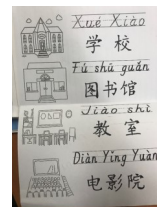 Xué Xiào
学校
Fú shū guǎn
图书馆
Jiào shì
教室
Diàn Yǐng Yuàn
电影院